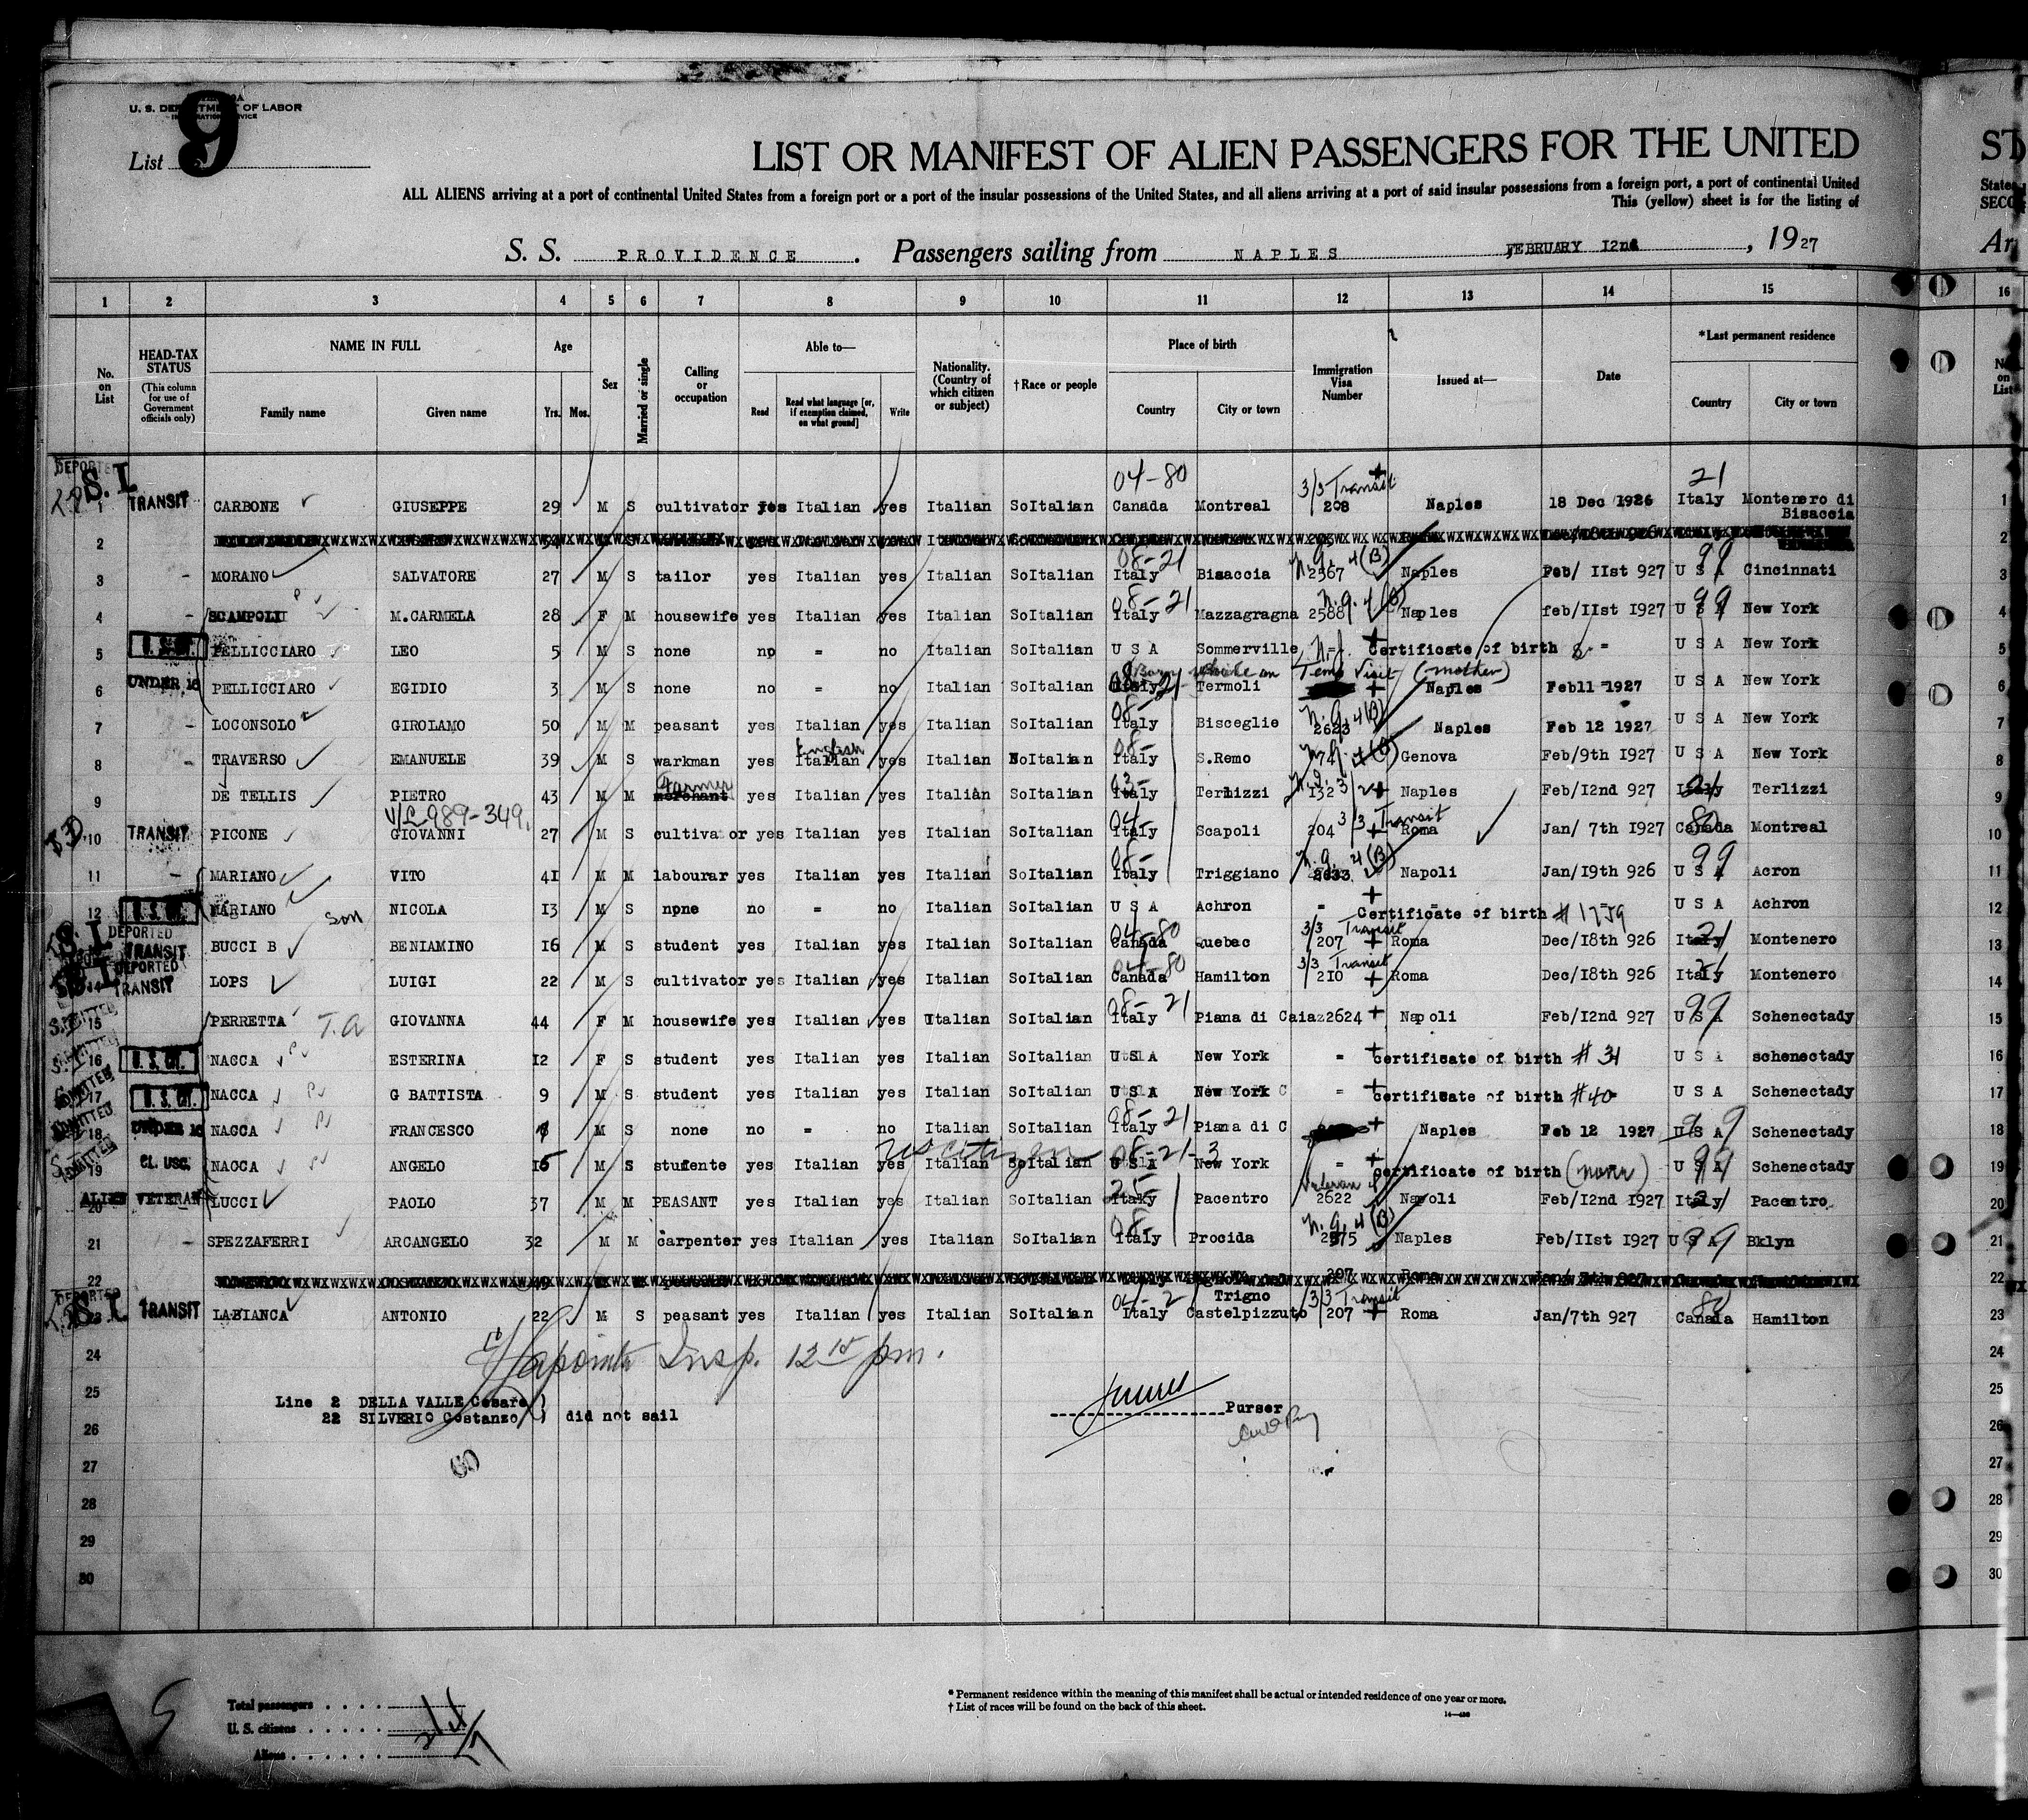 U. S. DEPARTMENT OF LABOR
List 9
LIST OR MANIFEST OF ALIEN PASSENGERS FOR THE UNITED
ST
ALL ALIENS arriving at a port of continental United States from a foreign port or a port of the insular possessions of the United States, and all aliens arriving at a port of said insular possessions from a foreign port, a port of continental United
This (yellow) sheet is for the listing of
S. S. PROVIDENCE . Passengers sailing from NAPLES FEBRUARY I2nd , 1927
1 2 3 4 5 6 7 8 9 10 11 12 13 14 15 16
No. on List
HEAD-TAX STATUS (This column for use of Government officials only)
NAME IN FULL Family name Given name
Age Yrs. Mos.
Sex
Married or single
Calling or occupation
Able to— Read Read what language [or, if exemption claimed, on what ground] Write
Nationality. (Country of which citizen or subject)
† Race or people
Place of birth Country City or town
Immigration Visa Number
Issued at—
Date
*Last permanent residence Country City or town
04-80 3/3 Transit 21
DEPORTED S.I. 1 TRANSIT CARBONE GIUSEPPE 29 M S cultivator yes Italian yes Italian SoItalian Canada Montreal 208 Naples 18 Dec 1926 Italy Montenero di Bisaccia 1
2 2
3 - MORANO SALVATORE 27 M S tailor yes Italian yes Italian SoItalian Italy 08-21 Bisaccia 2567 n.q. 4(B) Naples Feb/ IIst 927 U S A 99 Cincinnati 3
4 - SCAMPOLI M.CARMELA 28 F M housewife yes Italian yes Italian SoItalian Italy 08-21 Mazzagragna 2588 n.q. 4(B) Naples feb/IIst 1927 U S A 99 New York 4
5 U. S. CIT. PELLICCIARO LEO 5 M S none no = no Italian SoItalian U S A Sommerville Certificate of birth = U S A New York 5
Born while on Temp Visit (mother)
6 UNDER 16 PELLICCIARO EGIDIO 3 M S none no = no Italian SoItalian Italy 21 Termoli Naples Feb11 1927 U S A New York 6
7 - LOCONSOLO GIROLAMO 50 M M peasant yes Italian yes Italian SoItalian Italy 08- Bisceglie 2623 n.q. 4(B) Naples Feb 12 1927 U S A New York 7
8 - TRAVERSO EMANUELE 39 M S warkman yes Italian English yes Italian NoItalian Italy 08- S.Remo Genova Feb/9th 1927 U S A New York 8
9 DE TELLIS PIETRO 43 M M merchant Farmer yes Italian yes Italian SoItalian Italy 03- Terlizzi 132 Naples Feb/I2nd 927 Italy Terlizzi 9
V/L 989-349.
10 TRANSIT PICONE GIOVANNI 27 M S cultivator yes Italian yes Italian SoItalian Italy 04- Scapoli 204 3/3 Transit Roma Jan/ 7th 1927 Canada 80 Montreal 10
11 - MARIANO VITO 41 M M labourar yes Italian yes Italian SoItalian Italy 08- Triggiano 2633 n.q. 4(B) Napoli Jan/19th 926 U S A 99 Acron 11
12 U. S. CIT. MARIANO son NICOLA 13 M S npne no = no Italian SoItalian U S A Achron = Certificate of birth U S A Achron 12
S.I. DEPORTED TRANSIT BUCCI B BENIAMINO 16 M S student yes Italian yes Italian SoItalian Canada 04-80 Quebac 3/3 Transit 207 Roma Dec/18th 926 Italy 21 Montenero 13
S.I. DEPORTED 14 TRANSIT LOPS LUIGI 22 M S cultivator yes Italian yes Italian SoItalian Canada 04-80 Hamilton 3/3 Transit 210 Roma Dec/18th 926 Italy 21 Montenero 14
S.I. ADMITTED 15 PERRETTA T.A GIOVANNA 44 F M housewife yes Italian yes Italian SoItalian Italy 08-21 Piana di Caiaz 2624 Napoli Feb/I2nd 927 U S A 99 Schenectady 15
S.I. ADMITTED 16 U. S. CIT. NACCA ESTERINA 12 F S student yes Italian yes Italian SoItalian U S A New York = certificate of birth # 31 U S A schenectady 16
ADMITTED 17 U. S. CIT. NACCA G BATTISTA 9 M S student yes Italian yes Italian SoItalian U S A New York = certificate of birth #40 U S A Schenectady 17
ADMITTED 18 UNDER 16 NACCA FRANCESCO M S none no = no Italian SoItalian Italy 08-21 Piana di C Naples Feb 12 1927 U S A 99 Schenectady 18
US citizen
S.I. ADMITTED 19 CL. USC. NACCA ANGELO 15 M S studente yes Italian yes Italian SoItalian U S A 08-21-3 New York = certificate of birth (none) U S A 99 Schenectady 19
ALIEN VETERAN 20 LUCCI PAOLO 37 M M PEASANT yes Italian yes Italian SoItalian Italy 25- Pacentro Veteran 2622 Napoli Feb/I2nd 1927 Italy 21 Pacentro 20
21 - SPEZZAFERRI ARCANGELO 32 M M carpenter yes Italian yes Italian SoItalian Italy 08- Procida 2575 n.q. 4(B) Naples Feb/IIst 1927 U S A 99 Bklyn 21
22 22
DEPORTED S.I. 23 TRANSIT LABIANCA ANTONIO 22 M S peasant yes Italian yes Italian SoItalian Italy 04-2 Trigno Castelpizzuto 3/3 Transit 207 Roma Jan/7th 927 Canada 80 Hamilton 23
24 Insp. 12 pm. 24
25 Line 2 DELLA VALLE Cesare ) 25
22 SILVERIO Costanzo ) did not sail Purser
26 26
27 27
28 28
29 29
30 30
Total passengers . . . .
U. S. citizens . . . . .
Aliens . . . . . .
* Permanent residence within the meaning of this manifest shall be actual or intended residence of one year or more.
† List of races will be found on the back of this sheet.